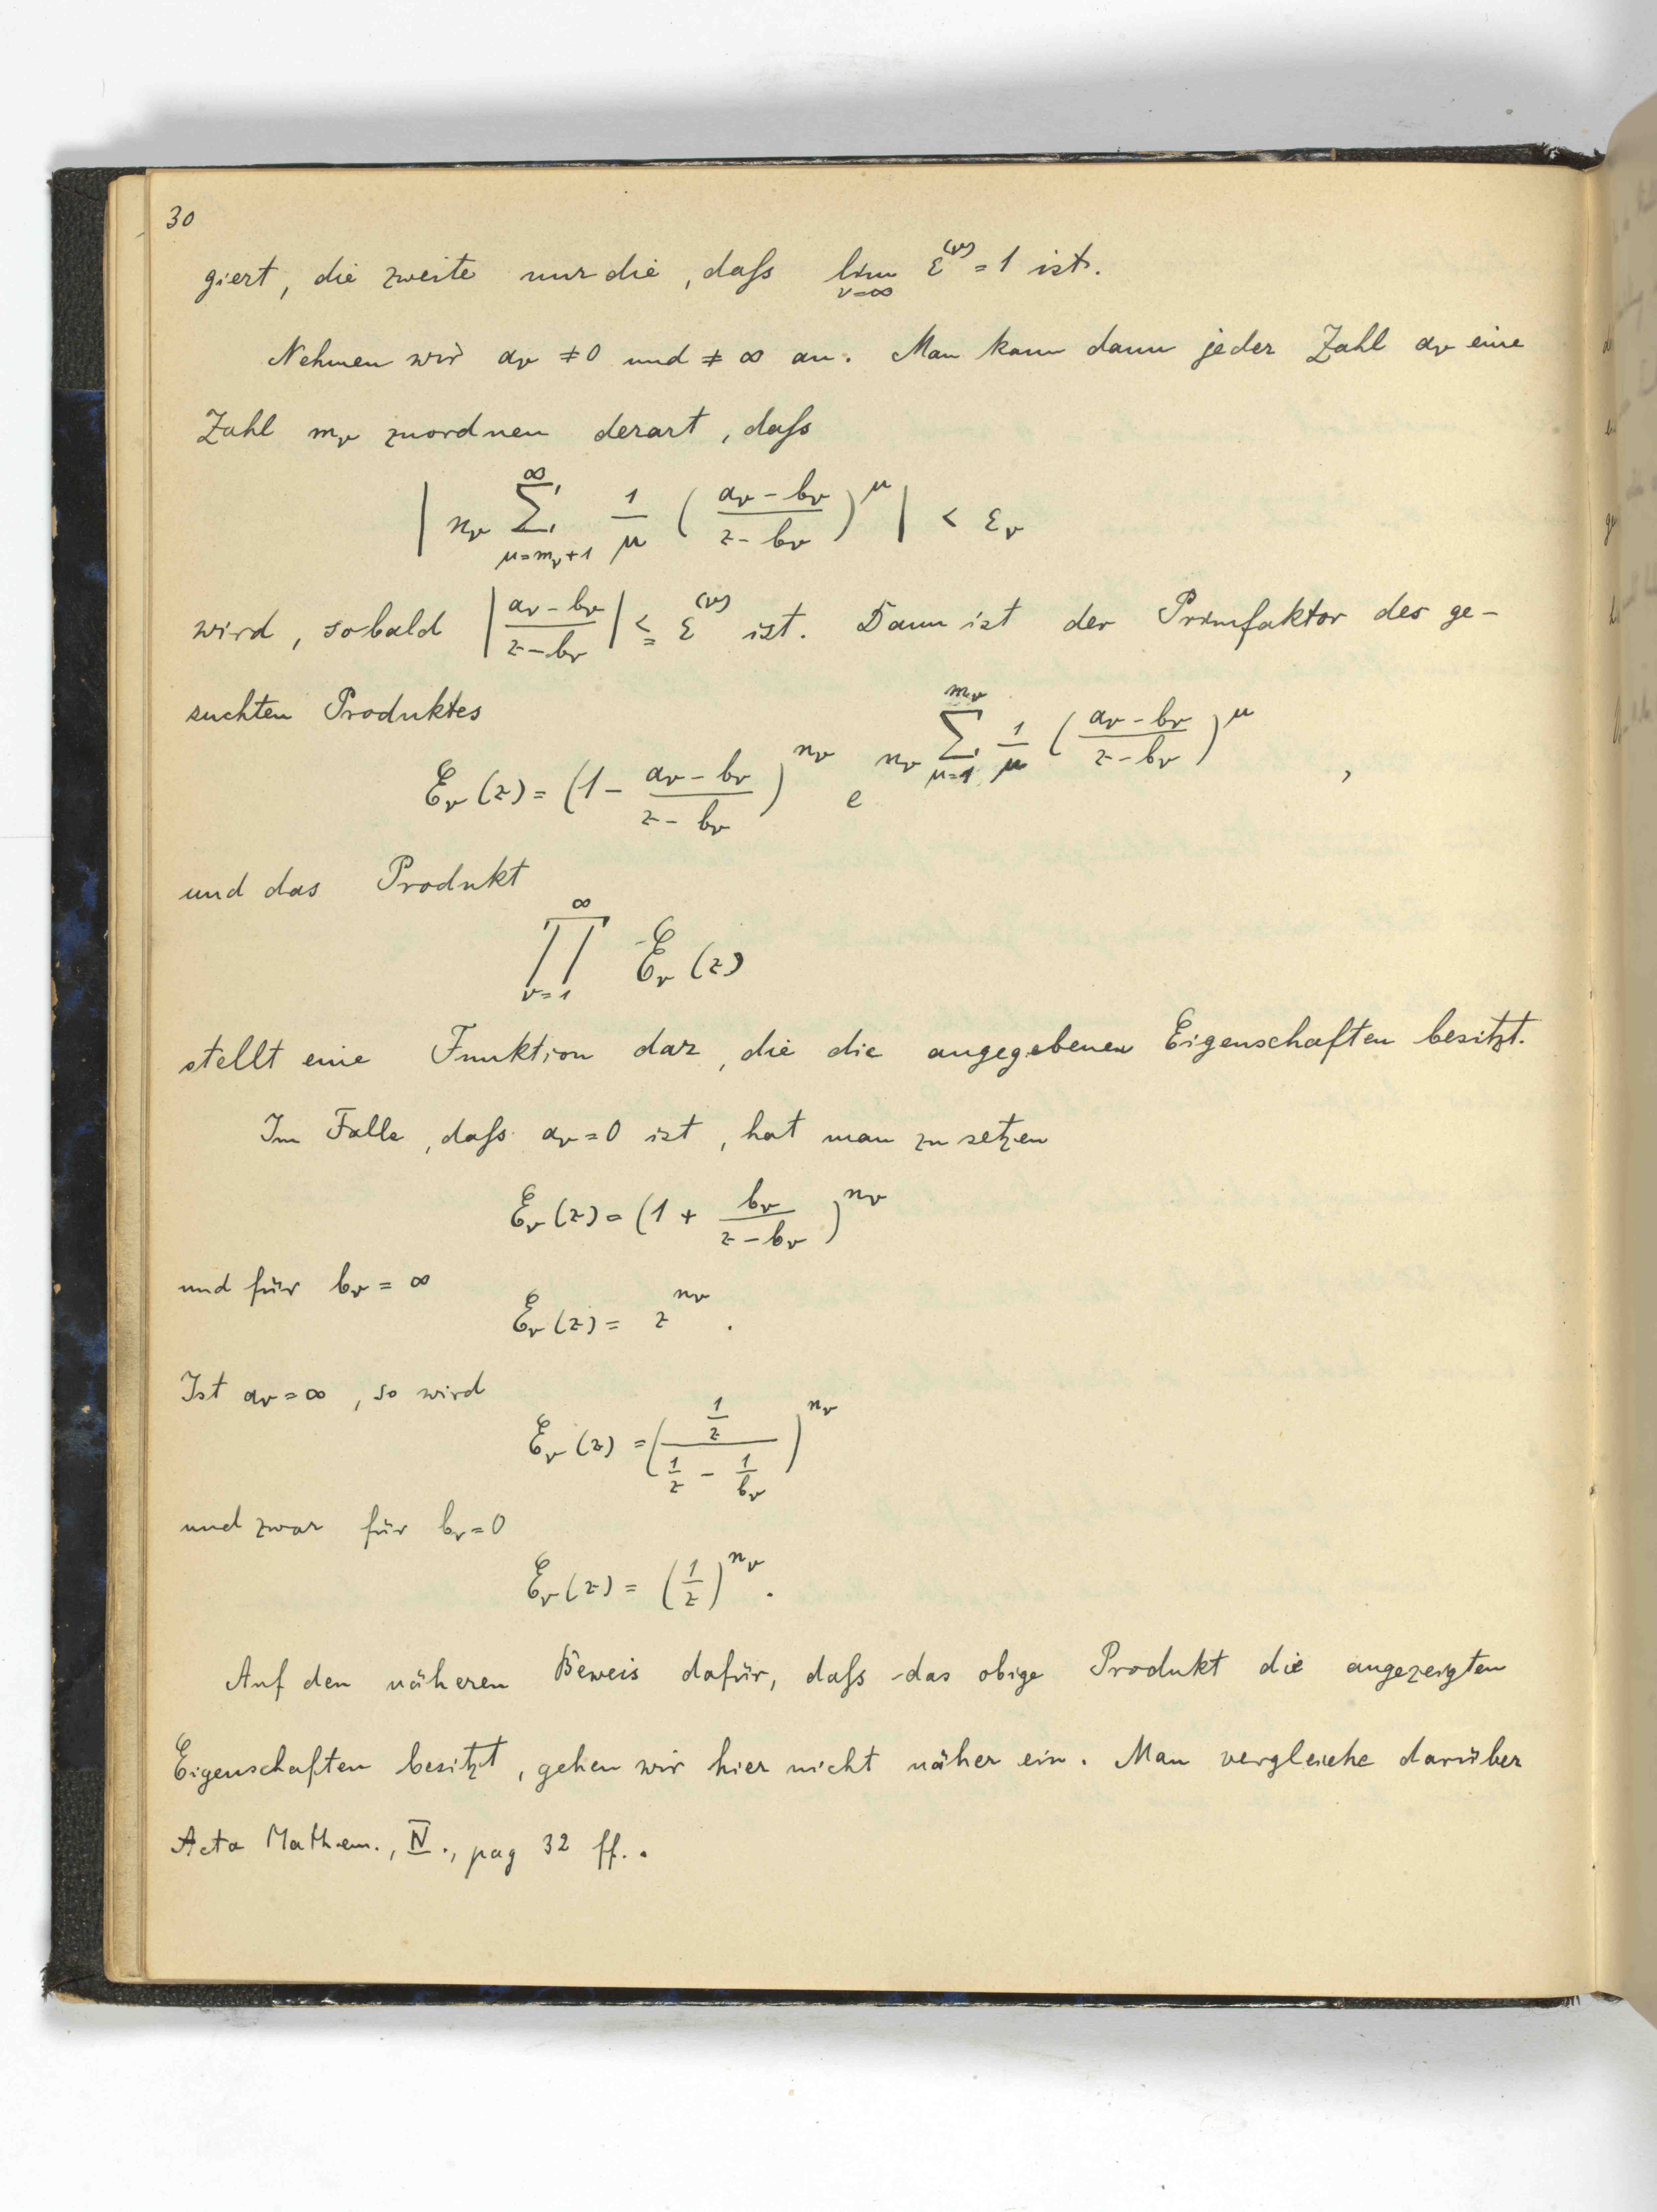 30
giert, die zweite nur die, daſs $\lim_{\nu=\infty} \varepsilon^{(\nu)} = 1$ ist.
Nehmen wir $a_\nu \neq 0$ und $\neq \infty$ an. Man kann dann jeder Zahl $a_\nu$ eine
Zahl $m_\nu$ zuordnen derart, daſs
$\left| n_\nu \sum_{\mu=m_\nu+1}^{\infty} \frac{1}{\mu} \left( \frac{a_\nu - b_\nu}{z - b_\nu} \right)^\mu \right| < \varepsilon_\nu$
wird, sobald $\left| \frac{a_\nu - b_\nu}{z - b_\nu} \right| \leq \varepsilon^{(\nu)}$ ist. Dann ist der Primfaktor des ge-
suchten Produktes
$E_\nu(z) = \left( 1 - \frac{a_\nu - b_\nu}{z - b_\nu} \right)^{n_\nu} e^{n_\nu \sum_{\mu=1}^{m_\nu} \frac{1}{\mu} \left( \frac{a_\nu - b_\nu}{z - b_\nu} \right)^\mu}$,
und das Produkt
$\prod_{\nu=1}^{\infty} E_\nu(z)$
stellt eine Funktion dar, die die angegebenen Eigenschaften besitzt.
Im Falle, daſs $a_\nu = 0$ ist, hat man zu setzen
$E_\nu(z) = \left( 1 + \frac{b_\nu}{z - b_\nu} \right)^{n_\nu}$
und für $b_\nu = \infty$
$E_\nu(z) = z^{n_\nu}$.
Ist $a_\nu = \infty$, so wird
$E_\nu(z) = \left( \frac{\frac{1}{z}}{\frac{1}{z} - \frac{1}{b_\nu}} \right)^{n_\nu}$
und zwar für $b_\nu = 0$
$E_\nu(z) = \left( \frac{1}{z} \right)^{n_\nu}$.
Auf den näheren Beweis dafür, daſs das obige Produkt die angezeigten
Eigenschaften besitzt, gehen wir hier nicht näher ein. Man vergleiche darüber
Acta Mathem., IV., pag 32 ff..